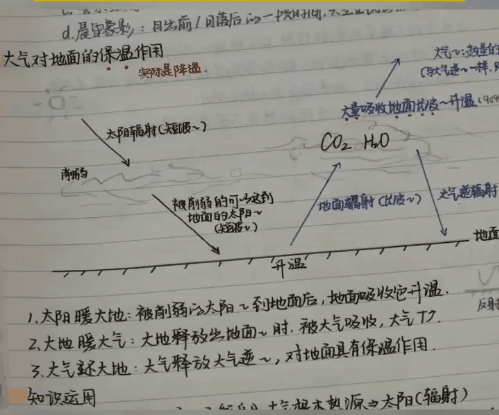 d.晨昏蒙影：日出前/日落后的一段时间，天空
大气对地面的保温作用
实际是降温.
大量吸收地面长波~升温
太阳辐射(短波~)
CO₂ H₂O
削弱
被削弱的可~达到
地面的太阳~
(短波~)
地面辐射(长波~)
大气逆辐射
地面
升温
1.太阳暖大地：被削弱的太阳~到地面后，地面吸收它升温.
反射
2.大地暖大气：大地释放出地面~时.被大气吸收，大气T↑.
3.大气还大地：大气释放大气逆~，对地面具有保温作用.
知识运用
太阳(辐射)